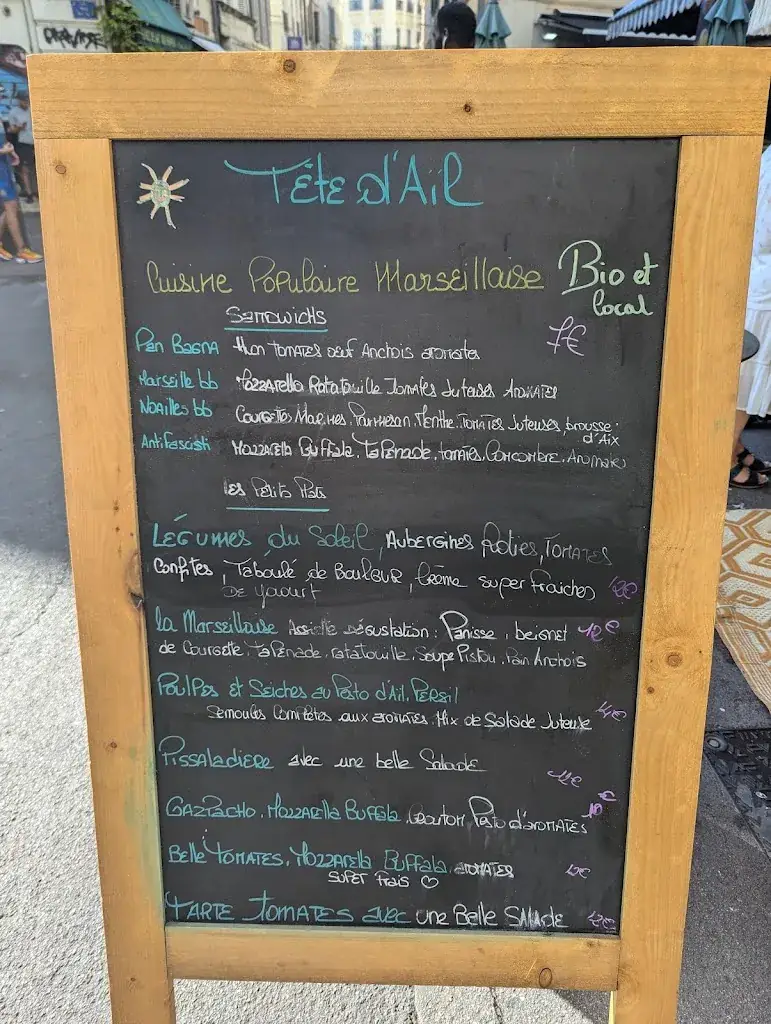 Tête d'Ail
Cuisine Populaire Marseillaise
Bio et
local
Sandwichs
7€
Pan Bagna Thon Tomates oeuf Anchois aromates
Marseille bb Mozzarella Ratatouille Tomates Juteuses Aromates
Noailles bb Courgettes Marinées, Parmesan, Menthe, Tomates Juteuses, brousse
d'Aix
Antifascisti Mozzarella Buffala, Tapenade, tomates, Concombre, Aromates
les Petits Plats
Légumes du Soleil, Aubergines Roties, Tomates
Confites, Taboulé de Boulgur, Crème super Fraiches
De yaourt
la Marseillaise Assiette dégustation: Panisse, beignet
de Courgette, tapenade, ratatouille, Soupe Pistou, Pain Anchois
Poulpes et Seiches au Pesto d'Ail, Persil
Semoules Complètes aux aromates, Mix de Salade Juteuse
Pissaladière avec une belle Salade
Gazpacho, Mozzarella Buffala, Crouton Pesto d'aromates
Belle Tomates, Mozzarella Buffala, aromates
super Frais
Tarte Tomates avec une Belle Salade